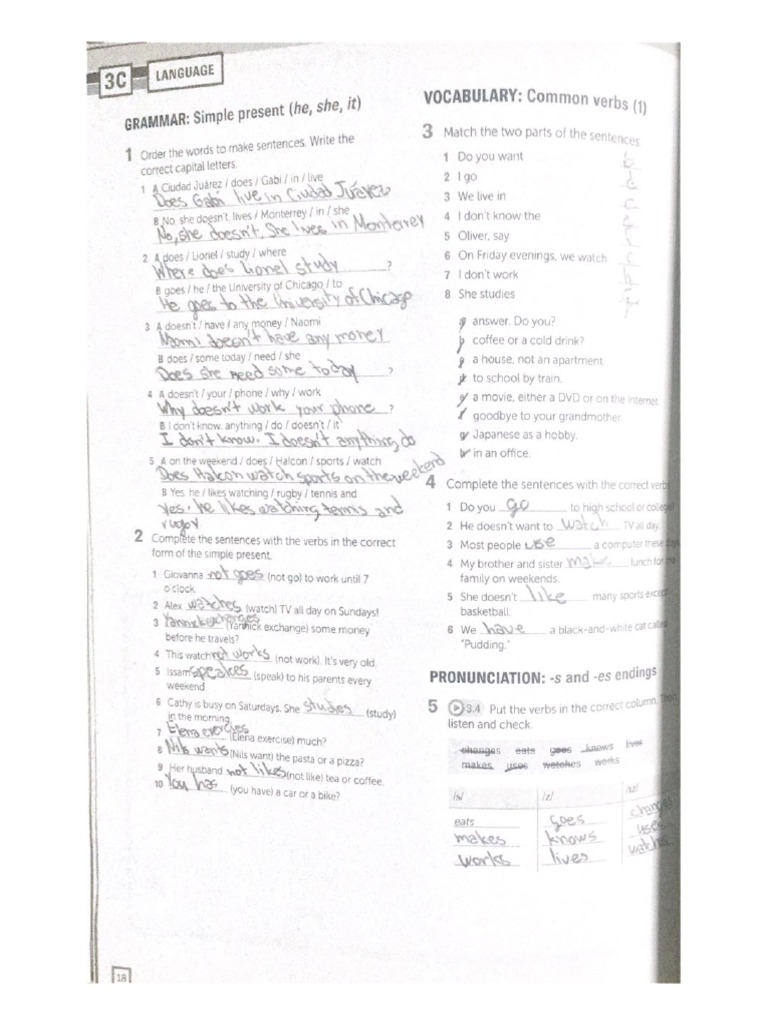 3C LANGUAGE
GRAMMAR: Simple present (he, she, it)
1 Order the words to make sentences. Write the
correct capital letters.
1 A Ciudad Juárez / does / Gabi / in / live
Does Gabi live in Ciudad Juárez
B No, she doesn't. lives / Monterrey / in / she
No, she doesn't. She lives in Monterrey
2 A does / Lionel / study / where
Where does Lionel study ?
B goes / he / the University of Chicago / to
He goes to the University of Chicago
3 A doesn't / have / any money / Naomi
Naomi doesn't have any money
B does / some today / need / she
Does she need some today ?
4 A doesn't / your / phone / why / work
Why doesn't work your phone ?
B I don't know. anything / do / doesn't / it
I don't know. I doesn't anything do
5 A on the weekend / does / Halcon / sports / watch
Does Halcon watch sports on the weekend
B Yes. he / likes watching / rugby / tennis and
Yes. he likes watching tennis and
rugby
2 Complete the sentences with the verbs in the correct
form of the simple present.
1 Giovanna not goes (not go) to work until 7
o'clock.
2 Alex watches (watch) TV all day on Sundays!
3 Yannick exchanges (Yannick exchange) some money
before he travels?
4 This watch not works (not work). It's very old.
5 Issam speakes (speak) to his parents every
weekend.
6 Cathy is busy on Saturdays. She studies (study)
in the morning.
7 Elena (Elena exercise) much?
8 Nils wants (Nils want) the pasta or a pizza?
9 Her husband not likes (not like) tea or coffee.
10 You has (you have) a car or a bike?
18
VOCABULARY: Common verbs (1)
3 Match the two parts of the sentences.
1 Do you want
2 I go
3 We live in
4 I don't know the
5 Oliver, say
6 On Friday evenings, we watch
7 I don't work
8 She studies
answer. Do you?
coffee or a cold drink?
a house, not an apartment.
to school by train.
a movie, either a DVD or on the Internet.
goodbye to your grandmother.
Japanese as a hobby.
in an office.
4 Complete the sentences with the correct verbs
1 Do you go to high school or college?
2 He doesn't want to watch TV all day.
3 Most people use a computer these days
4 My brother and sister make lunch for the
family on weekends.
5 She doesn't like many sports except
basketball.
6 We have a black-and-white cat called
"Pudding."
PRONUNCIATION: -s and -es endings
5 3.4 Put the verbs in the correct column. Then
listen and check.
changes eats goes knows lives
makes uses watches works
/s/ /z/ /ɪz/
eats goes changes
makes knows uses
works lives watches